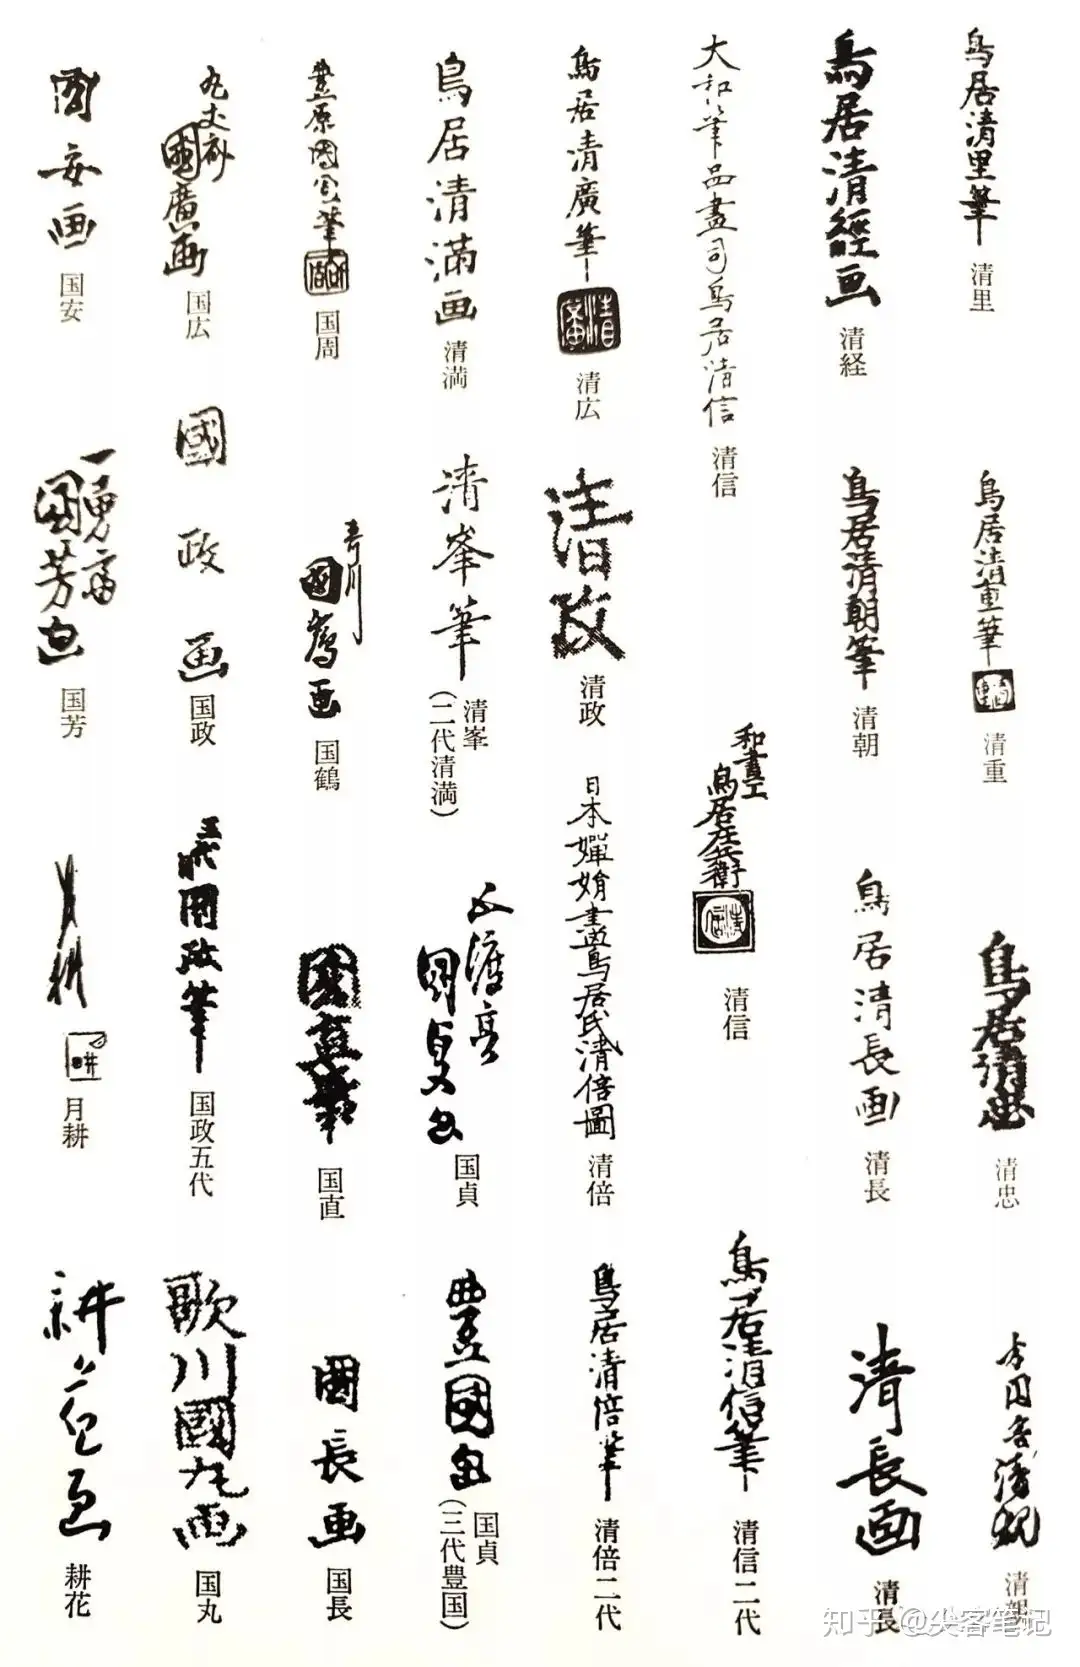 鳥居清里筆
清里
鳥居清重筆
清重
鳥居清忠
清忠
清
鳥居清經画
清経
鳥居清朝筆
清朝
鳥居清長画
清長
清長画
清長
大和筆品畫司鳥居清信
清信
和畫工
鳥居庄兵衛
清信
清信
鳥居清信筆
清信二代
鳥居清廣筆
清廣
清広
清政
清政
日本嬋娟畫鳥居氏清倍圖
清倍
鳥居清倍筆
清倍二代
鳥居清満画
清満
清峯筆
清峯
(二代清満)
五渡亭
國貞画
国貞
豊國画
国貞
(三代豊国)
豊原國周筆
国周
国鶴
國直筆
国直
國長画
国長
國廣画
国広
國政画
国政
五代國政筆
国政五代
歌川國丸画
国丸
國安画
国安
一勇斎
國芳画
国芳
月耕
月耕
耕花画
耕花
知乎 @尖客笔记